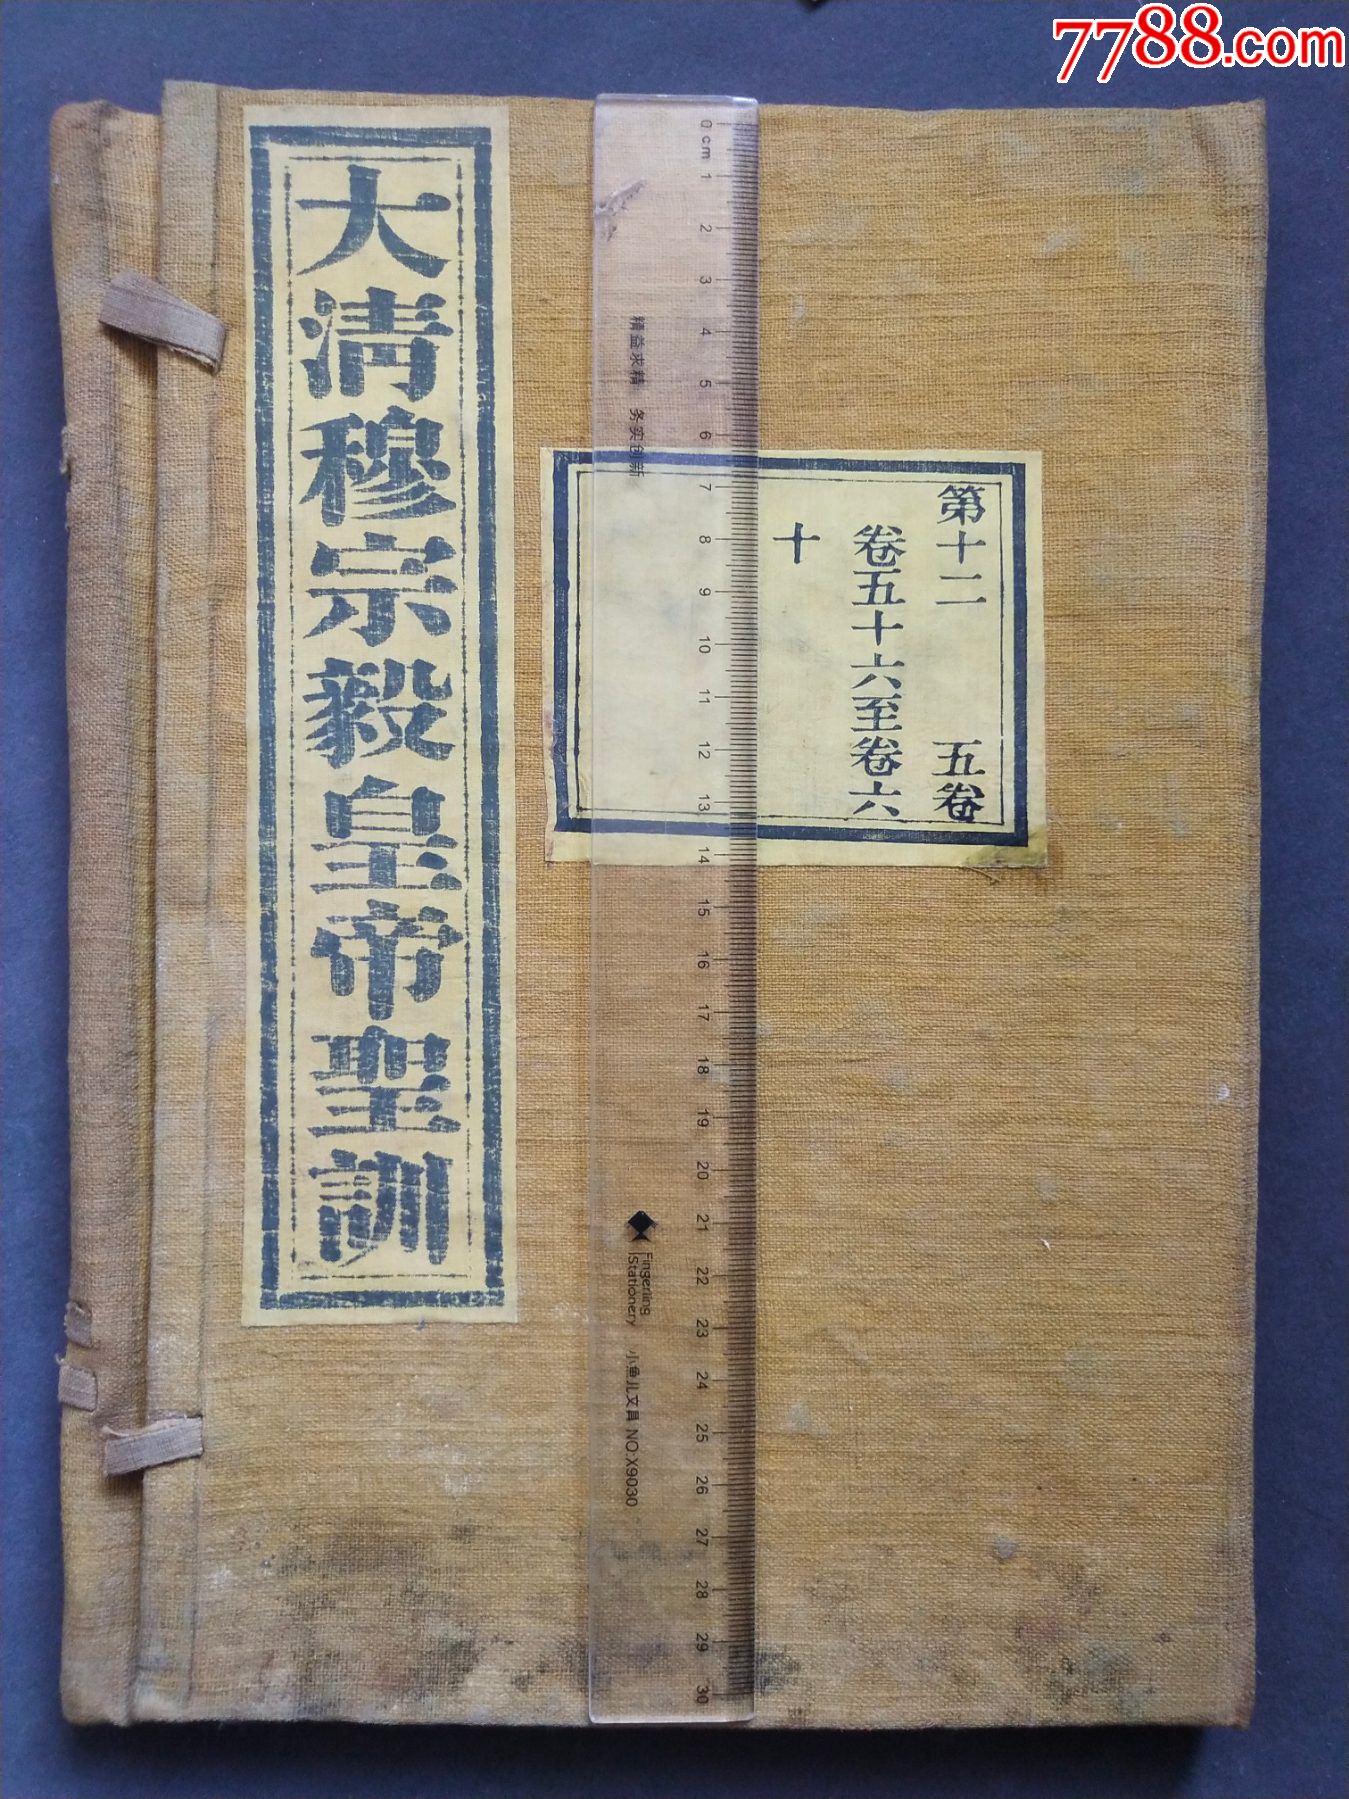 7788.com
大清穆宗毅皇帝聖訓
第十二 五卷
卷五十六至卷六
十
0 cm 1 2 3 4 5 6 7 8 9 10 11 12 13 14 15 16 17 18 19 20 21 22 23 24 25 26 27 28 29 30
精益求精 务实创新
Fingerling
Stationery 小鱼儿文具 NO:X9030